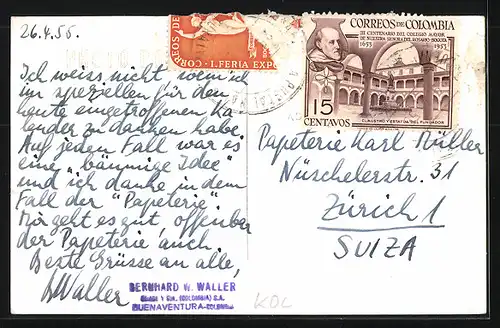 26.4.55.
Ich weiss nicht wem ich
im speziellen für den
heute eingetroffenen Ka-
lender zu danken habe.
Auf jeden Fall war es
eine "bäumige Idee"
und ich danke in dem
Fall der "Papeterie".
Mir geht es gut, offenbar
der Papeterie auch.
Beste Grüsse an alle,
BWaller
BERNHARD W. WALLER
(COLOMBIA) S.A.
BUENAVENTURA-COLOMBIA
KOL
CORREOS DE
I. FERIA EXPO
CORREOS DE COLOMBIA
III CENTENARIO DEL COLEGIO MAYOR
DE NUESTRA SEÑORA DEL ROSARIO-BOGOTA
1653 1953
15
CENTAVOS
CLAUSTRO Y ESTATUA DEL FUNDADOR
Papeterie Karl Müller
Nüschelerstr. 31
Zürich 1
SUIZA